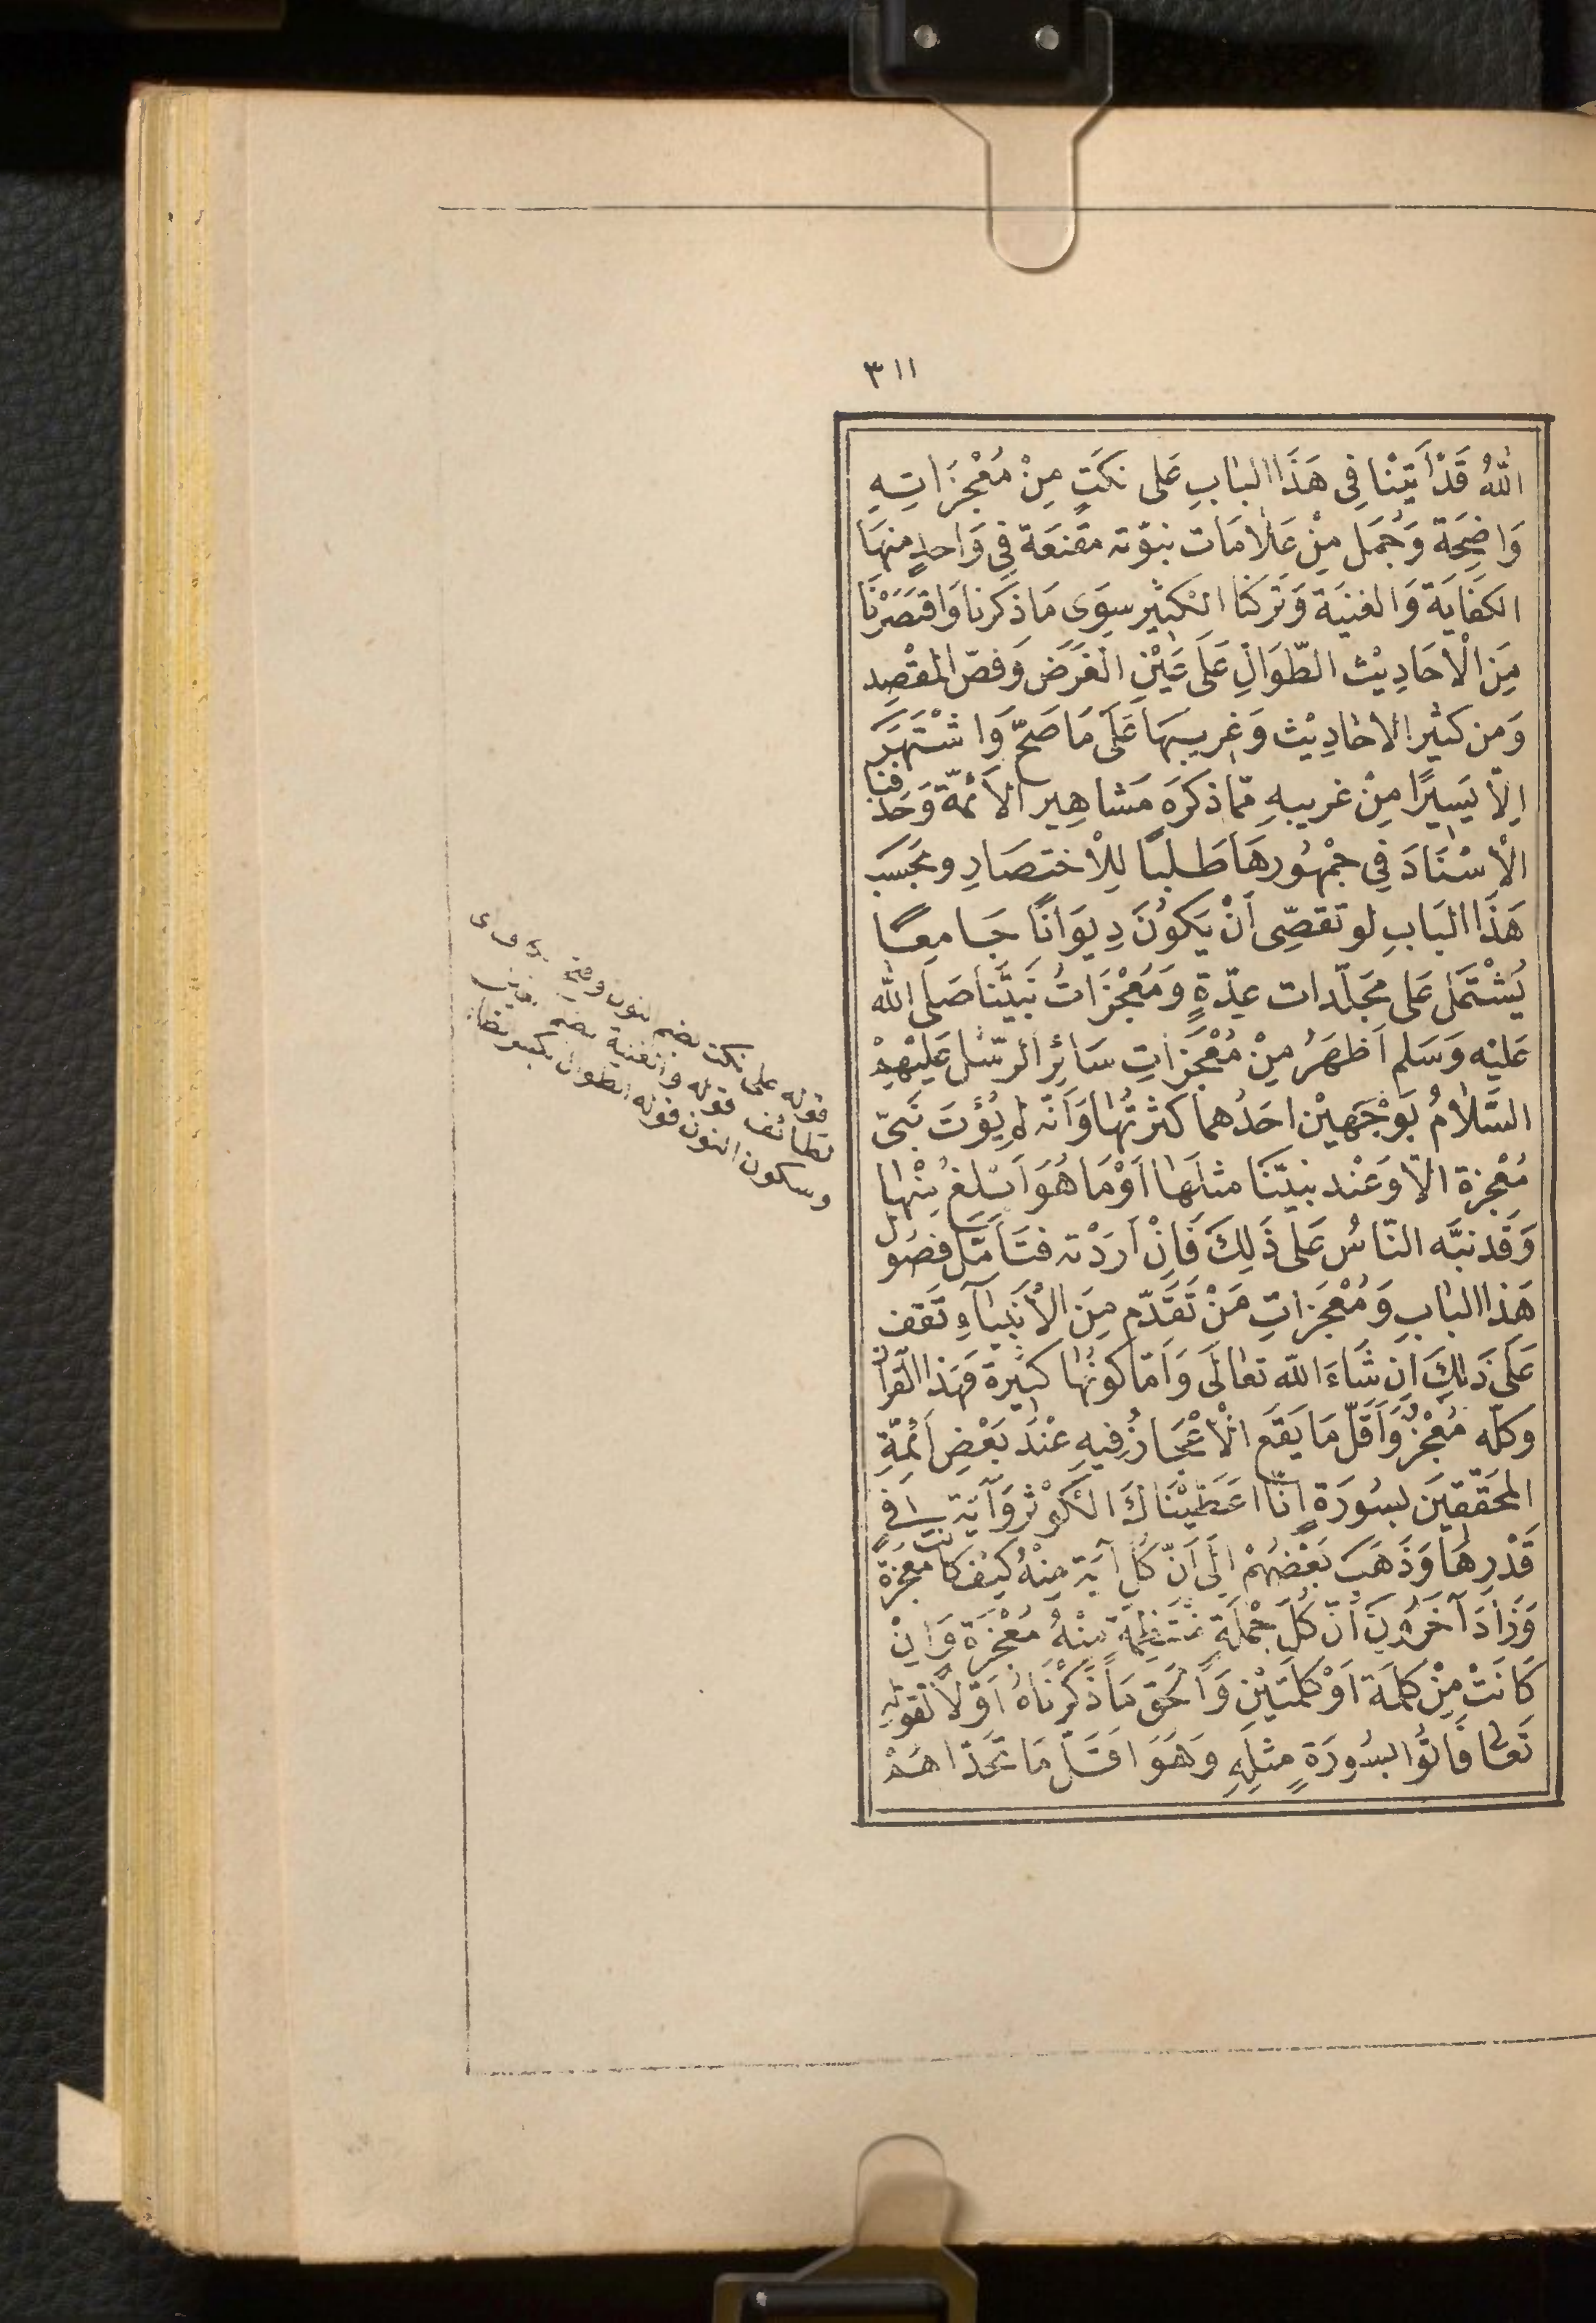 ٣١١
اللّٰهُ قَدْ اَتَيْنَا فِى هَذَا الْبَابِ عَلى نكَتٍ مِنْ مُعْجِزَاتِهِ
وَاضِحَة وَجُمَل مِنْ عَلَامَات نبوّته مقنعَة فِى وَاحدٍ منهَا
الكفَايَة وَالغنيَة وَتركنَا الكَثِير سِوَى مَا ذكرنا وَاقتَصَرْنَا
مِنَ الْاَحَادِيْث الطّوَالِ عَلَى عَيْنِ الغَرَض وَفصّ المَقْصِد
وَمن كثير الاحَادِيْث وَغريبِهَا عَلَى مَا صَحّ وَاشْتَهَرَ
اِلّا يَسِيرًا مِنْ غريبهِ ممّا ذكرَه مَشاهِير الأَئمّة وَحَذفنا
الْاِسْنَادَ فِى جمْهُورهَا طَلبًا لِلْاختصَارِ وبحَسَب
هَذَا البَابِ لو تقصِّى اَنْ يَكوُنَ دِيوَانًا جَامعًا
يُشْتَمَل عَلى مجَلّدات عِدّةٍ وَمُعْجِزَاتُ نَبيّنَا صَلى الله
عَليْه وَسَلم اَظهَرُ مِنْ مُعْجِزَاتِ سَائِر الرّسُل عَليْهِمْ
السَّلامُ بوَجْهَيْن احَدُهما كثرتُهَا وَاَنّه لم يُؤتَ نَبىّ
مُعْجزة الّا وَعَنْد نبيّنَا مثلَهَا اَوْ مَا هُوَ اَبْلغُ مِنْها
وَقَد نبَّه النّاسُ عَلى ذَلِكَ فَاِنْ اَرَدْته فتَأَمَّل فصُول
هَذا البَابِ وَمُعْجِزاتِ مَنْ تَقَدّم مِنَ الْاَنبيَآءِ تَقف
عَلى ذَلِكَ اِن شَاءَ الله تعالَى وَاَمّا كونُهَا كَثِيرة فَهَذا القرآن
وكلّه مُعْجِزٌ وَاَقَلّ مَا يَقَع الْاِعْجَازُ فِيهِ عنْدَ بَعْضِ اَئمّةِ
المحَقّقِينَ بسُورَةِ اِنّا اعَطيْنَاكَ الكَوْثر وَآيَة فِى
قَدْرِهَا وَذَهَبَ بَعْضُهُمْ اِلَى اَنّ كُلّ آيَة مِنْهُ كَيف كانت مُعجزة
وَزَادَ آخَرُونَ اَنّ كُلّ جُمْلَةٍ مُنتَظِمَة مِنْهُ مُعْجزَة وَاِنْ
كَانَتْ مِنْ كَلِمَة اَوْ كَلِمَتَيْنِ وَالحَق مَا ذَكَرْنَاهُ اَوّلًا لقولِهِ
تَعَالى فَاتُوا بسُورَةٍ مِثلِهِ وَهُوَ اقَلّ مَا تحَدّاهُمْ
قوله على نكت بضم النون وفتح
لطائف قوله والغنية بضم
وسكون النون قوله الطوال بكسر الطاء